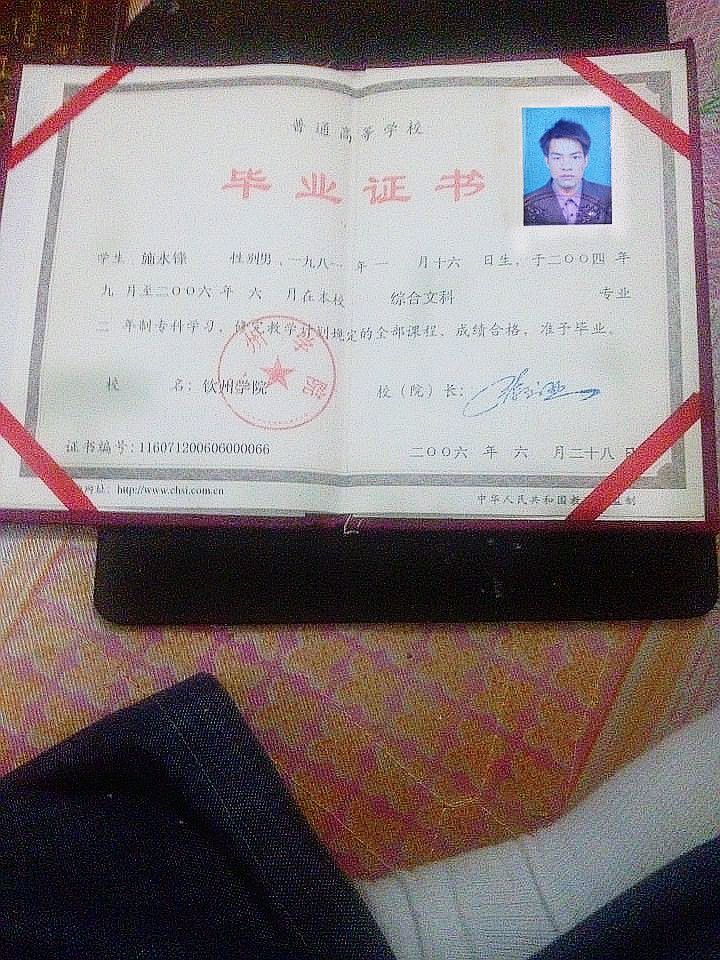 普通高等学校
毕业证书
学生 施永锋 性别男，一九八一年 一 月十六 日生，于二〇〇四年
九 月至二〇〇六 年 六 月在本校 综合文科 专业
二 年制专科学习，修完教学计划规定的全部课程，成绩合格，准予毕业。
校 名：钦州学院 校（院）长：
证书编号：116071200606000066 二〇〇六 年 六 月二十八 日
网址：http://www.chsi.com.cn 中华人民共和国教 监制